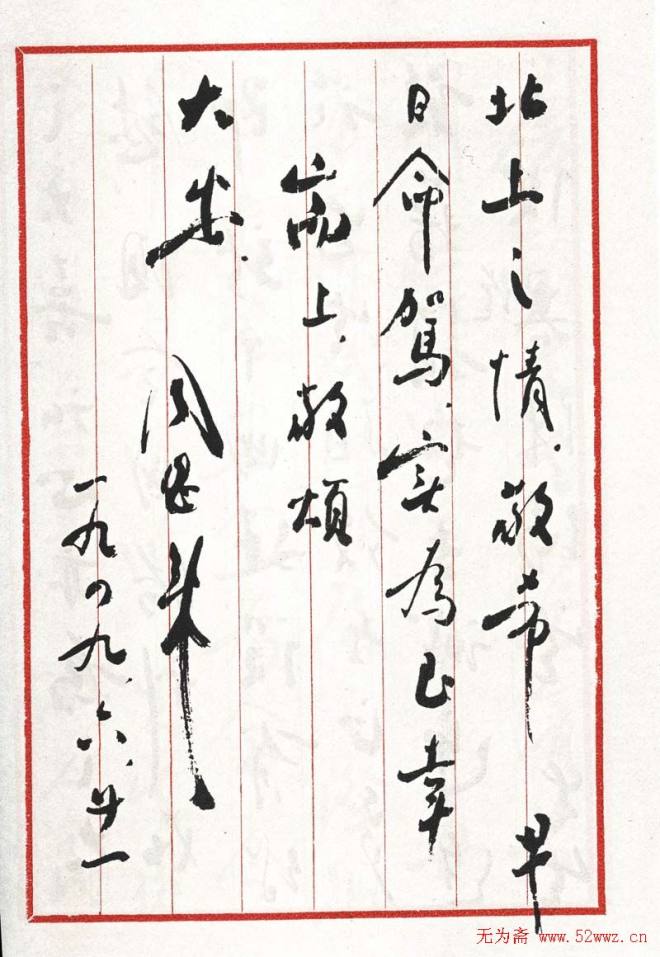 北上之情.敬希 早
日命駕.实為至幸
耑上.敬頌
大安. 周恩来
一九四九.六.廿一
无为斋 www.52wwz.cn